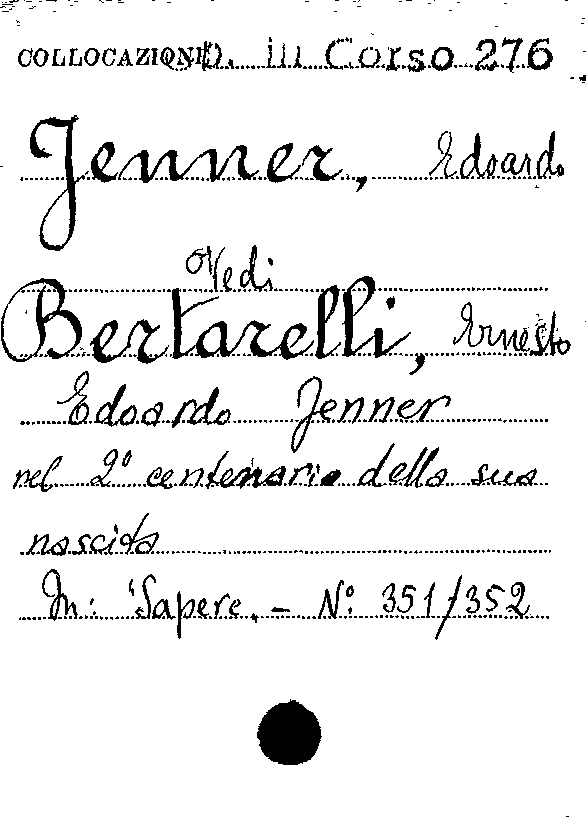 COLLOCAZIONE D. in Corso 276
Jenner, Edoardo
Vedi
Bertarelli, Ernesto
Edoardo Jenner
nel 2° centenario della sua
nascita
In: "Sapere. - N.° 351/352